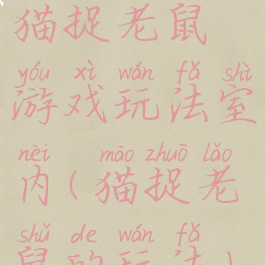 猫捉老鼠
yóu xì wán fǎ shì
游戏玩法室
nèi māo zhuō lǎo
内(猫捉老
shǔ de wán fǎ
鼠的玩法)